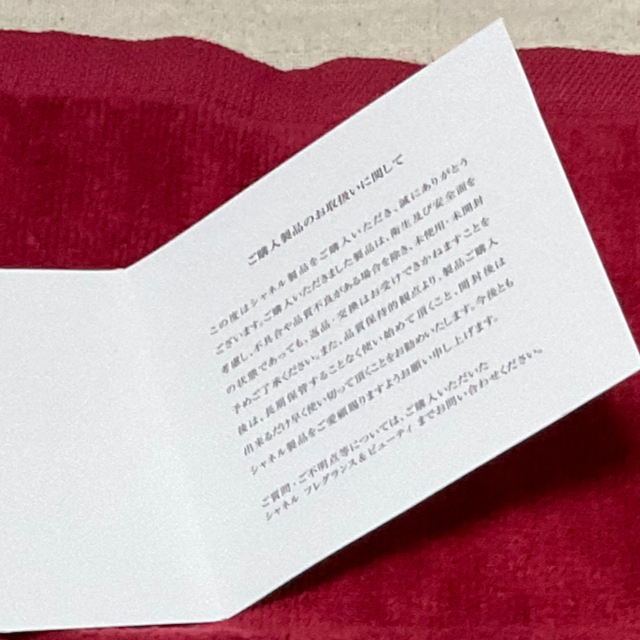 ご購入製品のお取扱いに関して
この度はシャネル製品をご購入いただき、誠にありがとう
ございます。ご購入いただきました製品は、衛生及び安全面を
考慮し、不具合や品質不良がある場合を除き、未使用・未開封
の状態であっても、返品・交換はお受けできかねますことを
予めご了承ください。また、品質保持の観点より、製品ご購入
後は、長期保管することなく使い始めて頂くこと、開封後は
出来るだけ早く使い切って頂くことをお勧めいたします。今後とも
シャネル製品をご愛顧賜りますようお願い申し上げます。
ご質問・ご不明点等については、ご購入いただいた
シャネル フレグランス&ビューティ までお問い合わせください。